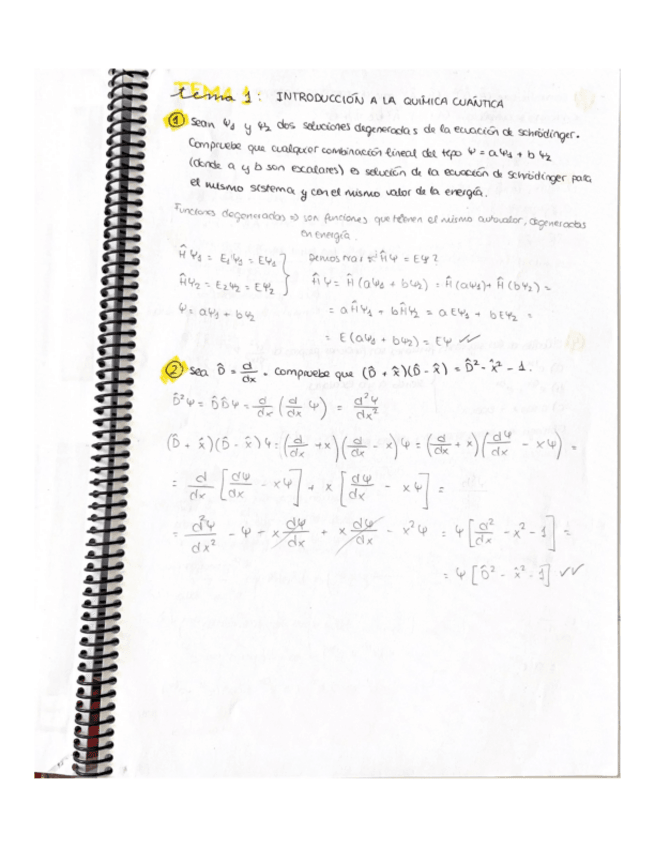 tema 1: INTRODUCCIÓN A LA QUÍMICA CUÁNTICA
① Sean Ψ1 y Ψ2 dos soluciones degeneradas de la ecuación de schrödinger.
Compruebe que cualquier combinación lineal del tipo Ψ = aΨ1 + bΨ2
(donde a y b son escalares) es solución de la ecuación de Schrödinger para
el mismo sistema y con el mismo valor de la energía.
Funciones degeneradas => son funciones que tienen el mismo autovalor, degeneradas
en energía.
ĤΨ1 = E1Ψ1 = EΨ1 } Demostrar: ĤΨ = EΨ?
ĤΨ2 = E2Ψ2 = EΨ2 } ĤΨ = Ĥ(aΨ1 + bΨ2) = Ĥ(aΨ1) + Ĥ(bΨ2) =
Ψ = aΨ1 + bΨ2 = aĤΨ1 + bĤΨ2 = aEΨ1 + bEΨ2 =
= E(aΨ1 + bΨ2) = EΨ ✓✓
② Sea D̂ = d/dx. compruebe que (D̂ + x̂)(D̂ - x̂) = D̂² - x̂² - 1.
D̂²Ψ = D̂D̂Ψ = d/dx (d/dx Ψ) = d²Ψ/dx²
(D̂ + x̂)(D̂ - x̂)Ψ = (d/dx + x)(d/dx - x)Ψ = (d/dx + x)(dΨ/dx - xΨ) =
= d/dx [dΨ/dx - xΨ] + x [dΨ/dx - xΨ] =
= d²Ψ/dx² - Ψ - x dΨ/dx + x dΨ/dx - x²Ψ = Ψ[d²/dx - x² - 1] =
= Ψ[D̂² - x̂² - 1] ✓✓